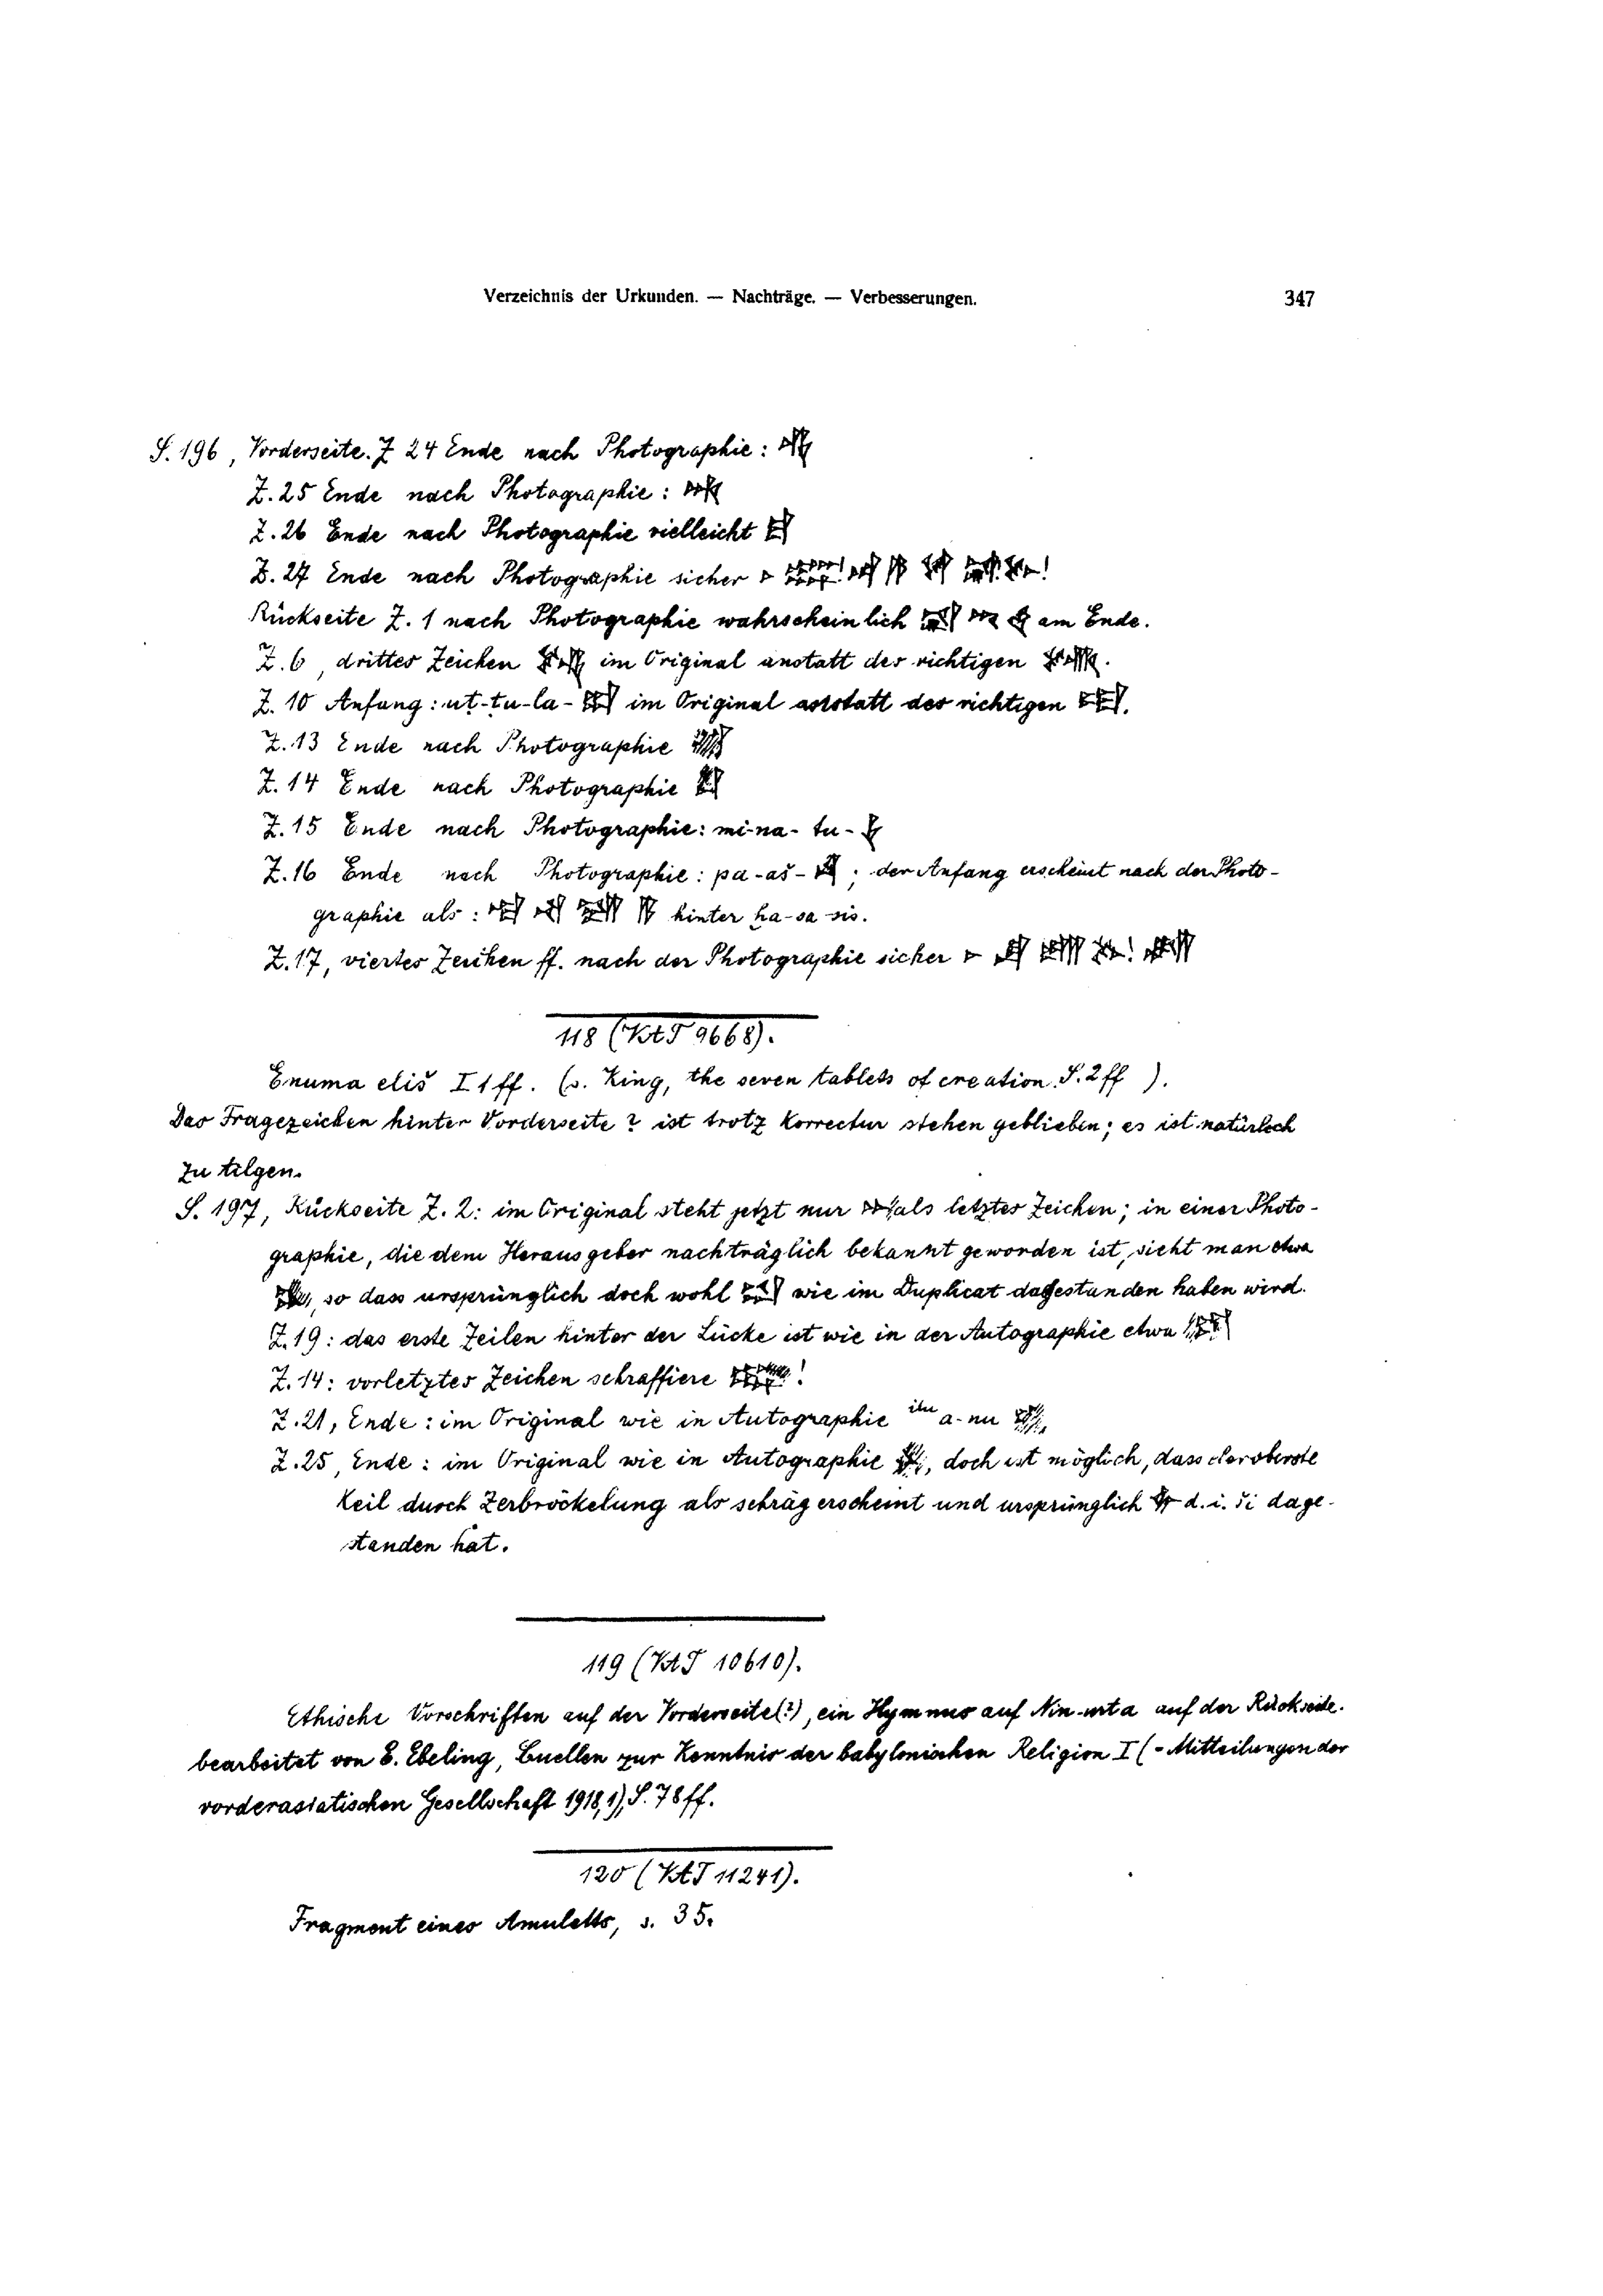 Verzeichnis der Urkunden. — Nachträge. — Verbesserungen. 347
S. 196, Vorderseite. Z 24 Ende nach Photographie:
Z. 25 Ende nach Photographie:
Z. 26 Ende nach Photographie vielleicht
Z. 27 Ende nach Photographie sicher ! ! !
Rückseite Z. 1 nach Photographie wahrscheinlich am Ende.
Z. 6, drittes Zeichen im Original anstatt des richtigen .
Z. 10 Anfang: uṭ-ṭu-la- im Original anstatt des richtigen .
Z. 13 Ende nach Photographie
Z. 14 Ende nach Photographie
Z. 15 Ende nach Photographie: mi-na-tu-
Z. 16 Ende nach Photographie: pa-aš- ; der Anfang erscheint nach der Photo-
graphie als: hinter ḫa-sa-sis.
Z. 17, viertes Zeichen ff. nach der Photographie sicher !
118 (VAT 9668).
Enuma eliš I 1 ff. (s. King, the seven tablets of creation S. 2 ff ).
Das Fragezeichen hinter Vorderseite? ist trotz Korrectur stehen geblieben; es ist natürlich
zu tilgen.
S. 197, Rückseite Z. 2: im Original steht jetzt nur als letztes Zeichen; in einer Photo-
graphie, die dem Herausgeber nachträglich bekannt geworden ist, sieht man etwa
, so dass ursprünglich doch wohl wie im Duplicat dagestanden haben wird.
Z. 19: das erste Zeilen hinter der Lücke ist wie in der Autographie etwa
Z. 14: vorletztes Zeichen schraffiere !
Z. 21, Ende: im Original wie in Autographie ilu a-nu
Z. 25, Ende: im Original wie in Autographie , doch ist möglich, dass der oberste
Keil durch Zerbröckelung als schräg erscheint und ursprünglich d. i. ši dage-
standen hat.
119 (VAT 10610).
Ethische Vorschriften auf der Vorderseite(?), ein Hymnus auf Nin-urta auf der Rückseite.
bearbeitet von E. Ebeling, Quellen zur Kenntnis der babylonischen Religion I (= Mitteilungen der
vorderasiatischen Gesellschaft 1918,1), S. 78 ff.
120 (VAT 11241).
Fragment eines Amuletts, s. 35.